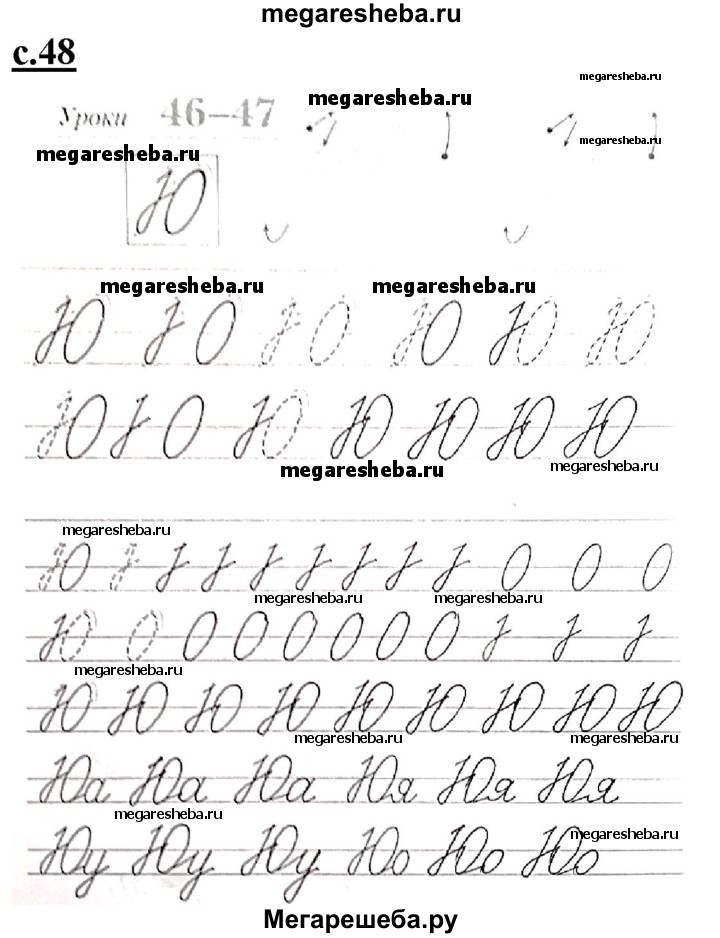 megaresheba.ru
с.48
megaresheba.ru
Уроки 46–47
megaresheba.ru
megaresheba.ru
megaresheba.ru
Ю
megaresheba.ru megaresheba.ru
Ю Ю Ю Ю Ю Ю
Ю Ю Ю Ю Ю Ю Ю
megaresheba.ru megaresheba.ru
megaresheba.ru
Ю О О О
megaresheba.ru megaresheba.ru
Ю О О О О О О О
megaresheba.ru
Ю Ю Ю Ю Ю Ю Ю Ю Ю
megaresheba.ru megaresheba.ru
Юа Юа Юа Юя Юя Юя
megaresheba.ru
megaresheba.ru
Юу Юу Юу Юо Юо Юо
Мегарешеба.ру